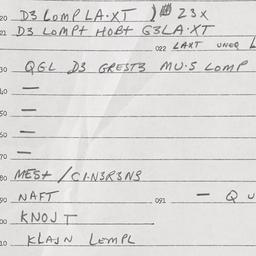 20 D3 LOMP LA·XT 23X
21 D3 LOMPT HOBT G3LA·XT
022 LAXT UNEQ L
30 QGL D3 GREST3 MU·S LOMP
40 —
50 —
60 —
70 —
80 MEST / C1·N3R3NS
90 NAFT 091 — Q U
00 KNOJT
10 KLAJN LEMPL